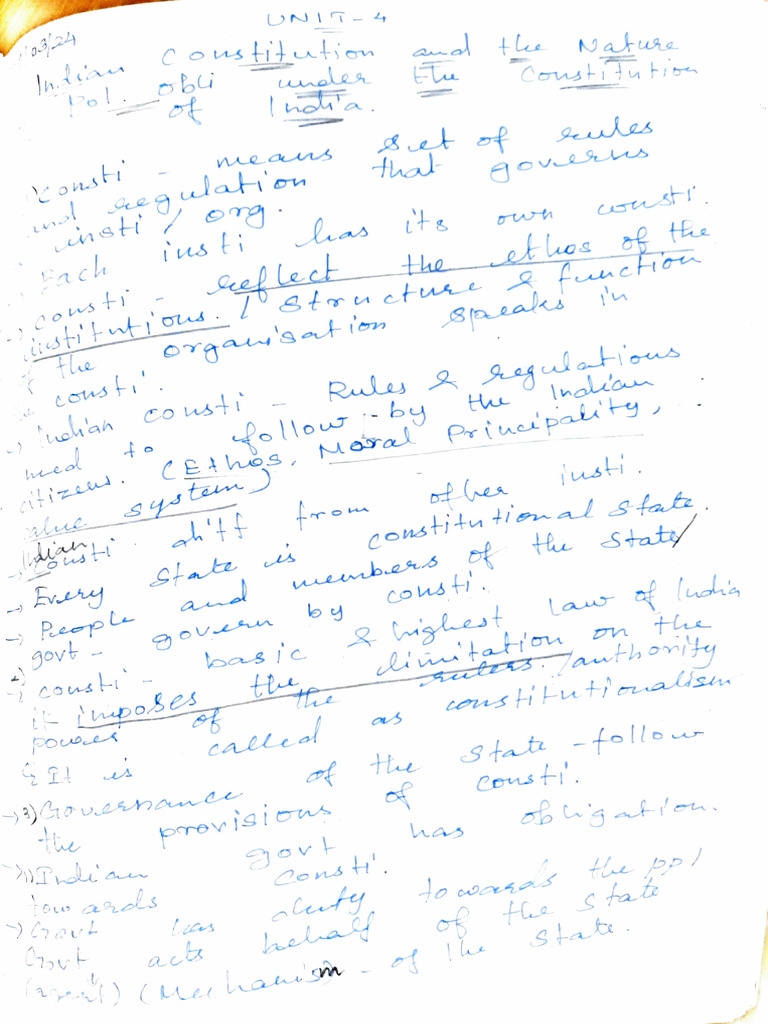 UNIT-4
/03/24
Indian Constitution and the Nature
Pol. obli under the Constitution
of India.
Consti - means set of rules
and regulation that governs
insti / org.
Each insti has its own consti.
-> consti - reflect the ethos of the
institutions. / structure & function
of the organisation speaks in
the consti.
-> Indian consti - Rules & regulations
need to follow by the Indian
citizens. (Ethos, Moral Principality,
value system)
Indian
-> Consti diff from other insti.
-> Every state is constitutional state.
-> People and members of the state/
govt - govern by consti.
2)
-> consti - basic & highest law of India
it imposes the limitation on the
power of the rulers / authority
& It is called as constitutionalism
-> 3) Governance of the state - follow
the provisions of consti.
-> 1) Indian govt has obligation.
towards consti.
-> Govt has duty towards the ppl
Govt acts behalf of the state
(agent) (Mechanism - of the state.